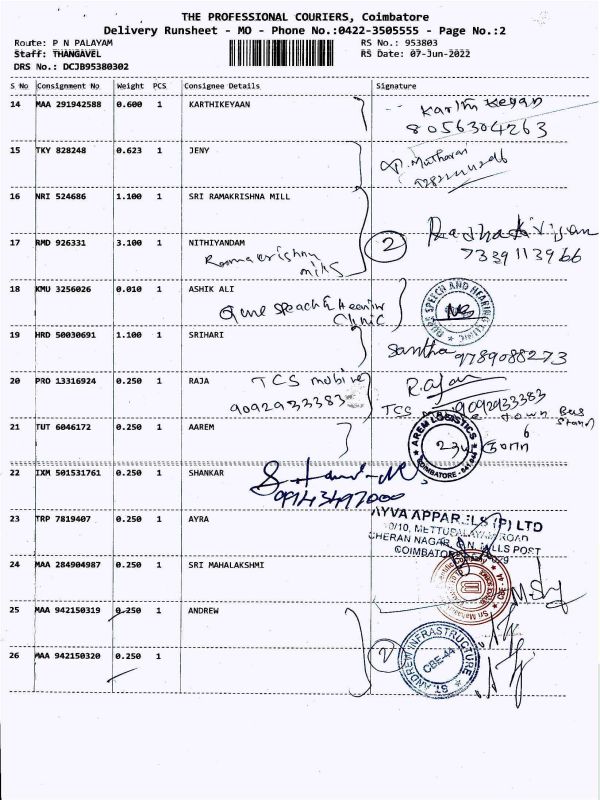 THE PROFESSIONAL COURIERS, Coimbatore
Delivery Runsheet - MO - Phone No.:0422-3505555 - Page No.:2
Route: P N PALAYAM
RS No.: 953803
Staff: THANGAVEL
RS Date: 07-Jun-2022
DRS No.: DCJB95380302
S No Consignment No Weight PCS Consignee Details Signature
14 MAA 291942588 0.600 1 KARTHIKEYAAN
Karthikeyan
8056304263
15 TKY 828248 0.623 1 JENY
16 NRI 524686 1.100 1 SRI RAMAKRISHNA MILL
17 RMD 926331 3.100 1 NITHIYANDAM
2
7339113966
Ramakrishna
mills
18 KMU 3256026 0.010 1 ASHIK ALI
SPEECH AND HEARING CLINIC
Speach & Hearing
Clinic
19 HRD 50030691 1.100 1 SRIHARI
Santha 9789088273
20 PRO 13316924 0.250 1 RAJA
TCS mobive
9092933383
Rajan
TCS 9092933383
town Bus
Stand
21 TUT 6046172 0.250 1 AAREM
AREM LOGISTICS
COIMBATORE
22 IXM 501531761 0.250 1 SHANKAR
09143497000
23 TRP 7819407 0.250 1 AYRA
AYVA APPARELS (P) LTD
METTUPALAYAM ROAD
CHERAN NAGAR, G.N. MILLS POST
24 MAA 284904987 0.250 1 SRI MAHALAKSHMI
25 MAA 942150319 0.250 1 ANDREW
26 MAA 942150320 0.250 1
2
ST. ANDREW INFRASTRUCTURE
CBE-44